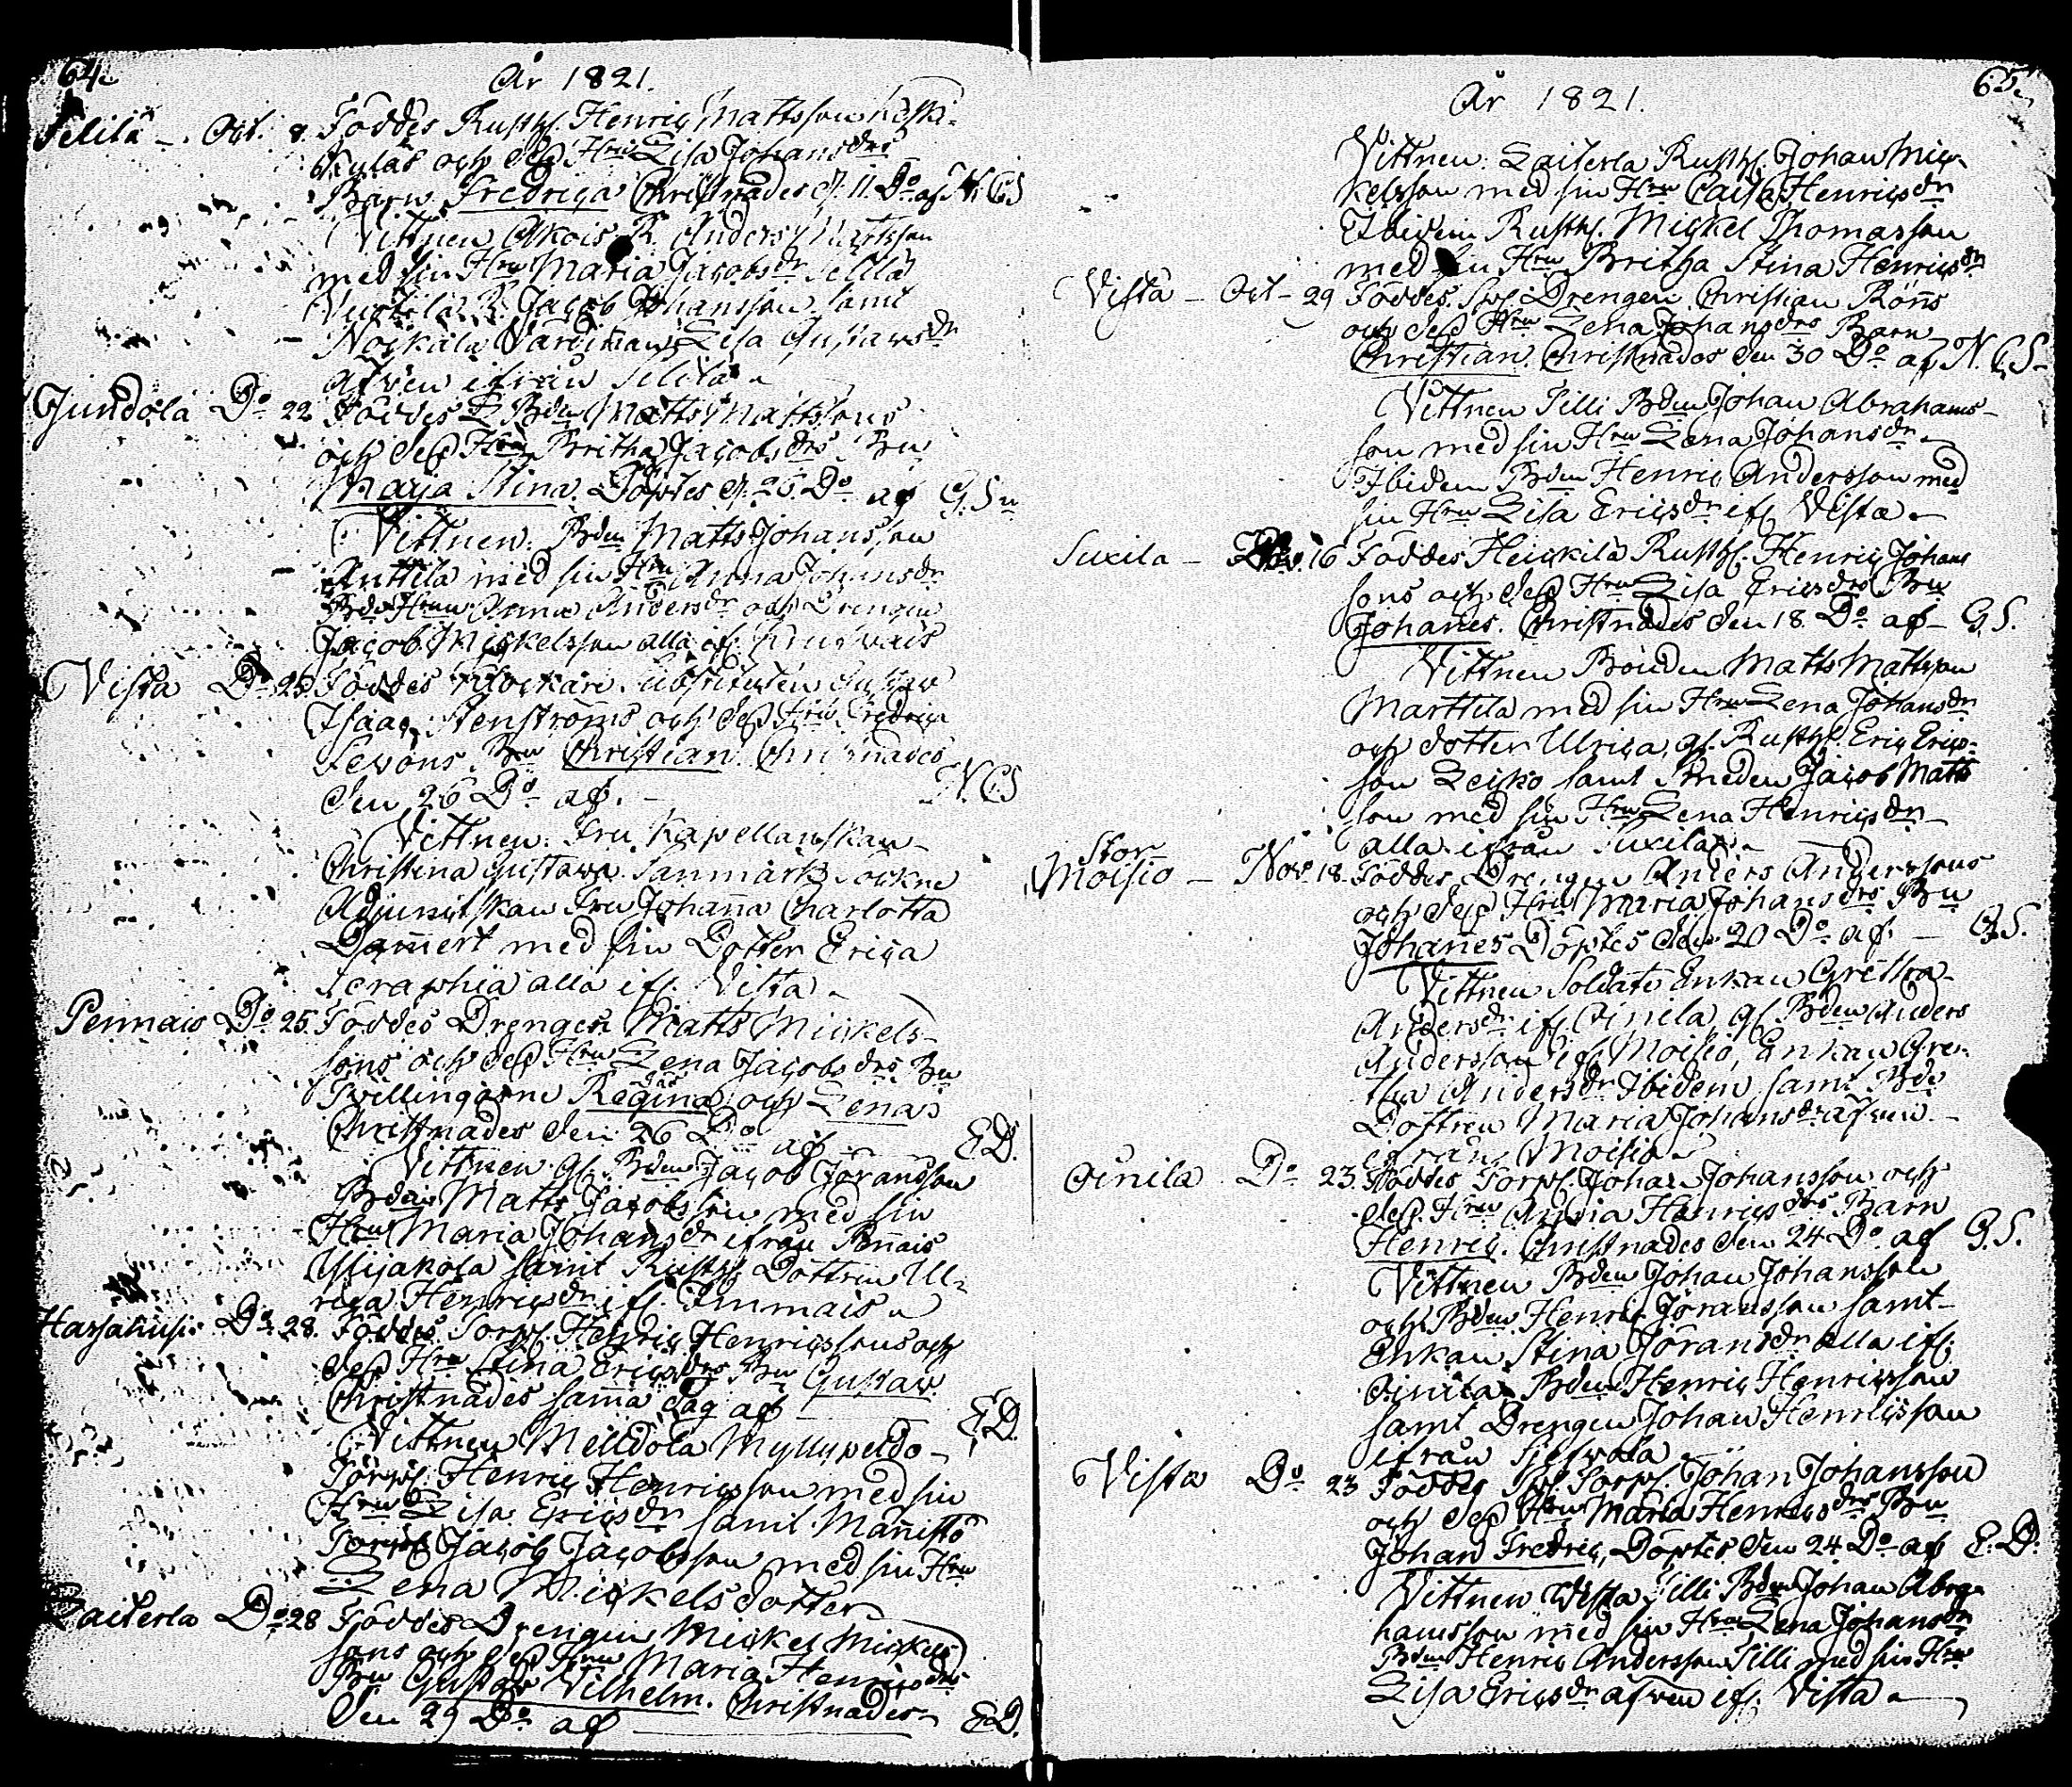 64.
År 1821.
Selilä - Oct. 8. Föddes Rusth. Henric Mattsson Keski-
kyläs och dess Hru Lisa Johansdrs
Barn Fredrica Christnades d. 11 Do af N. CS
Vittnen Akois R. Anders Mattsson
med sin Hru Maria Jacobsdr Selilä
R. Jacob Johansson samt
Lisa Gustavsdr
äfven ifrån Selilä
Jundola Do 22 Föddes Bden Matts Mattssons
och dess Hru Britha Jacobsdrs Bn
Maja Stina. Döptes d. 26 Do af G. S
Vittnen. Bden Matts Johansson
Anttila med sin Hru Anna Johansdr
Bde Hrun Anna Andersdr och Drengen
Jacob Mickelsson alla if.
Vista Do 25 Föddes Klockare Substituten Gustav
Isaac Stenströms och dess Hru Fredrica
Levons Bn Christian. Christnades
den 26 Do af. - N. CS
Vittnen: Fru Kapellanskan
Christina Gustava Sanmark Sockne
Adjunctskan Fru Johanna Charlotta
Dammert med sin Dotter Erica
Seraphia alla if. Vista
Pennais Do 25. Föddes Drengen Matts Mickels-
sons och dess Hru Lena Jacobsdrs Bn
Tvillingarne Regina och Lena
Christnades den 26 Do af - E.D.
Vittnen gl. Bden Jacob Joransson
Bden Matts Jacobsson med sin
Hru Maria Johansdr ifrån Pennais
Yllijakola samt Rusth. Dottren Ul-
rica Henricsdr if. Immais
Harjanusi Do 28. Föddes Torp. Henric Henricssons och
dess Hru Stina Ericsdrs Bn Gustav
Christnades samma dag af E.D.
Vittnen Melldola Myllypeldo-
Torp. Henric Henricsson med sin
Hru Lisa Ericsdr samt Mannistö
Torp. Jacob Jacobsson med sin Hru
Lena Mickelsdotter
Laiterla Do 28 Föddes Drengen Mickel Mickels
sons och dess Hru Maria Henricsdrs
Bn Gustav Vilhelm. Christnades
den 29 Do af E.D.
65.
År 1821.
Vittnen: Laiterla Rusth. Johan Mic-
kelsson med sin Hru Caisa Henricsdr
Ibidem Rusth. Mickel Thomasson
med sin Hru Britha Stina Henricsdr
Vista - Oct - 29 Föddes Drengen Christian Röns
och dess Hru Lena Johansdrs Barn
Christian. Christnades den 30 Do af N. C S-
Vittnen Silli Bden Johan Abrahams-
son med sin Hru Lena Johansdr
Ibidem Bden Henric Andersson med
sin Hru Lisa Ericsdr if. Vista
Suxila - Nov. 16 Föddes Heickilä Rusth. Henric Johans
sons och dess Hru Lisa Ericsdrs Bn
Johannes. Christnades den 18 Do af - G. S.
Vittnen Bonden Matts Mattsson
Marttila med sin Hru Lena Johansdr
och dotter Ulrica, gl. Rusth. Eric Erics-
son Leisko samt Smeden Jacob Matts
son med sin Hru Lena Henricsdr
alla ifrån Suxila
Stor
Moisio - Nov. 18. Föddes Drengen Anders Anderssons
och dess Hru Maria Johansdrs Bn
Johanes Döptes den 20 Do af - G. S.
Vittnen Soldats Enkan Gretha
Andersdr if. Oinila, gl. Bden Anders
Andersson if. Moisio, Enkan Gre-
tha Andersdr Ibidem samt Bde
Dottren Maria Johansdr äfven
ifrån Moisio
Oinila Do 23. Föddes Torp. Johan Johansson och
dess Hru Anna Henricsdrs Barn
Henric. Christnades den 24 Do af G. S.
Vittnen Bden Johan Johansson
och Bden Henric Joransson samt
Enkan Stina Joransdr alla if.
Oinila Bden Henric Henricsson
samt Drengen Johan Henricsson
ifrån
Vista Do 23 Föddes Torp. Johan Johansson
och dess Hru Maria Henricsdrs Bn
Johan Fredric, Döptes den 24 Do af E. D.
Vittnen Vista Silli Bden Johan Abra-
hamsson med sin Hru Lena Johansdr
Bden Henric Andersson Silli med sin Hru
Lisa Ericsdr äfven if. Vista